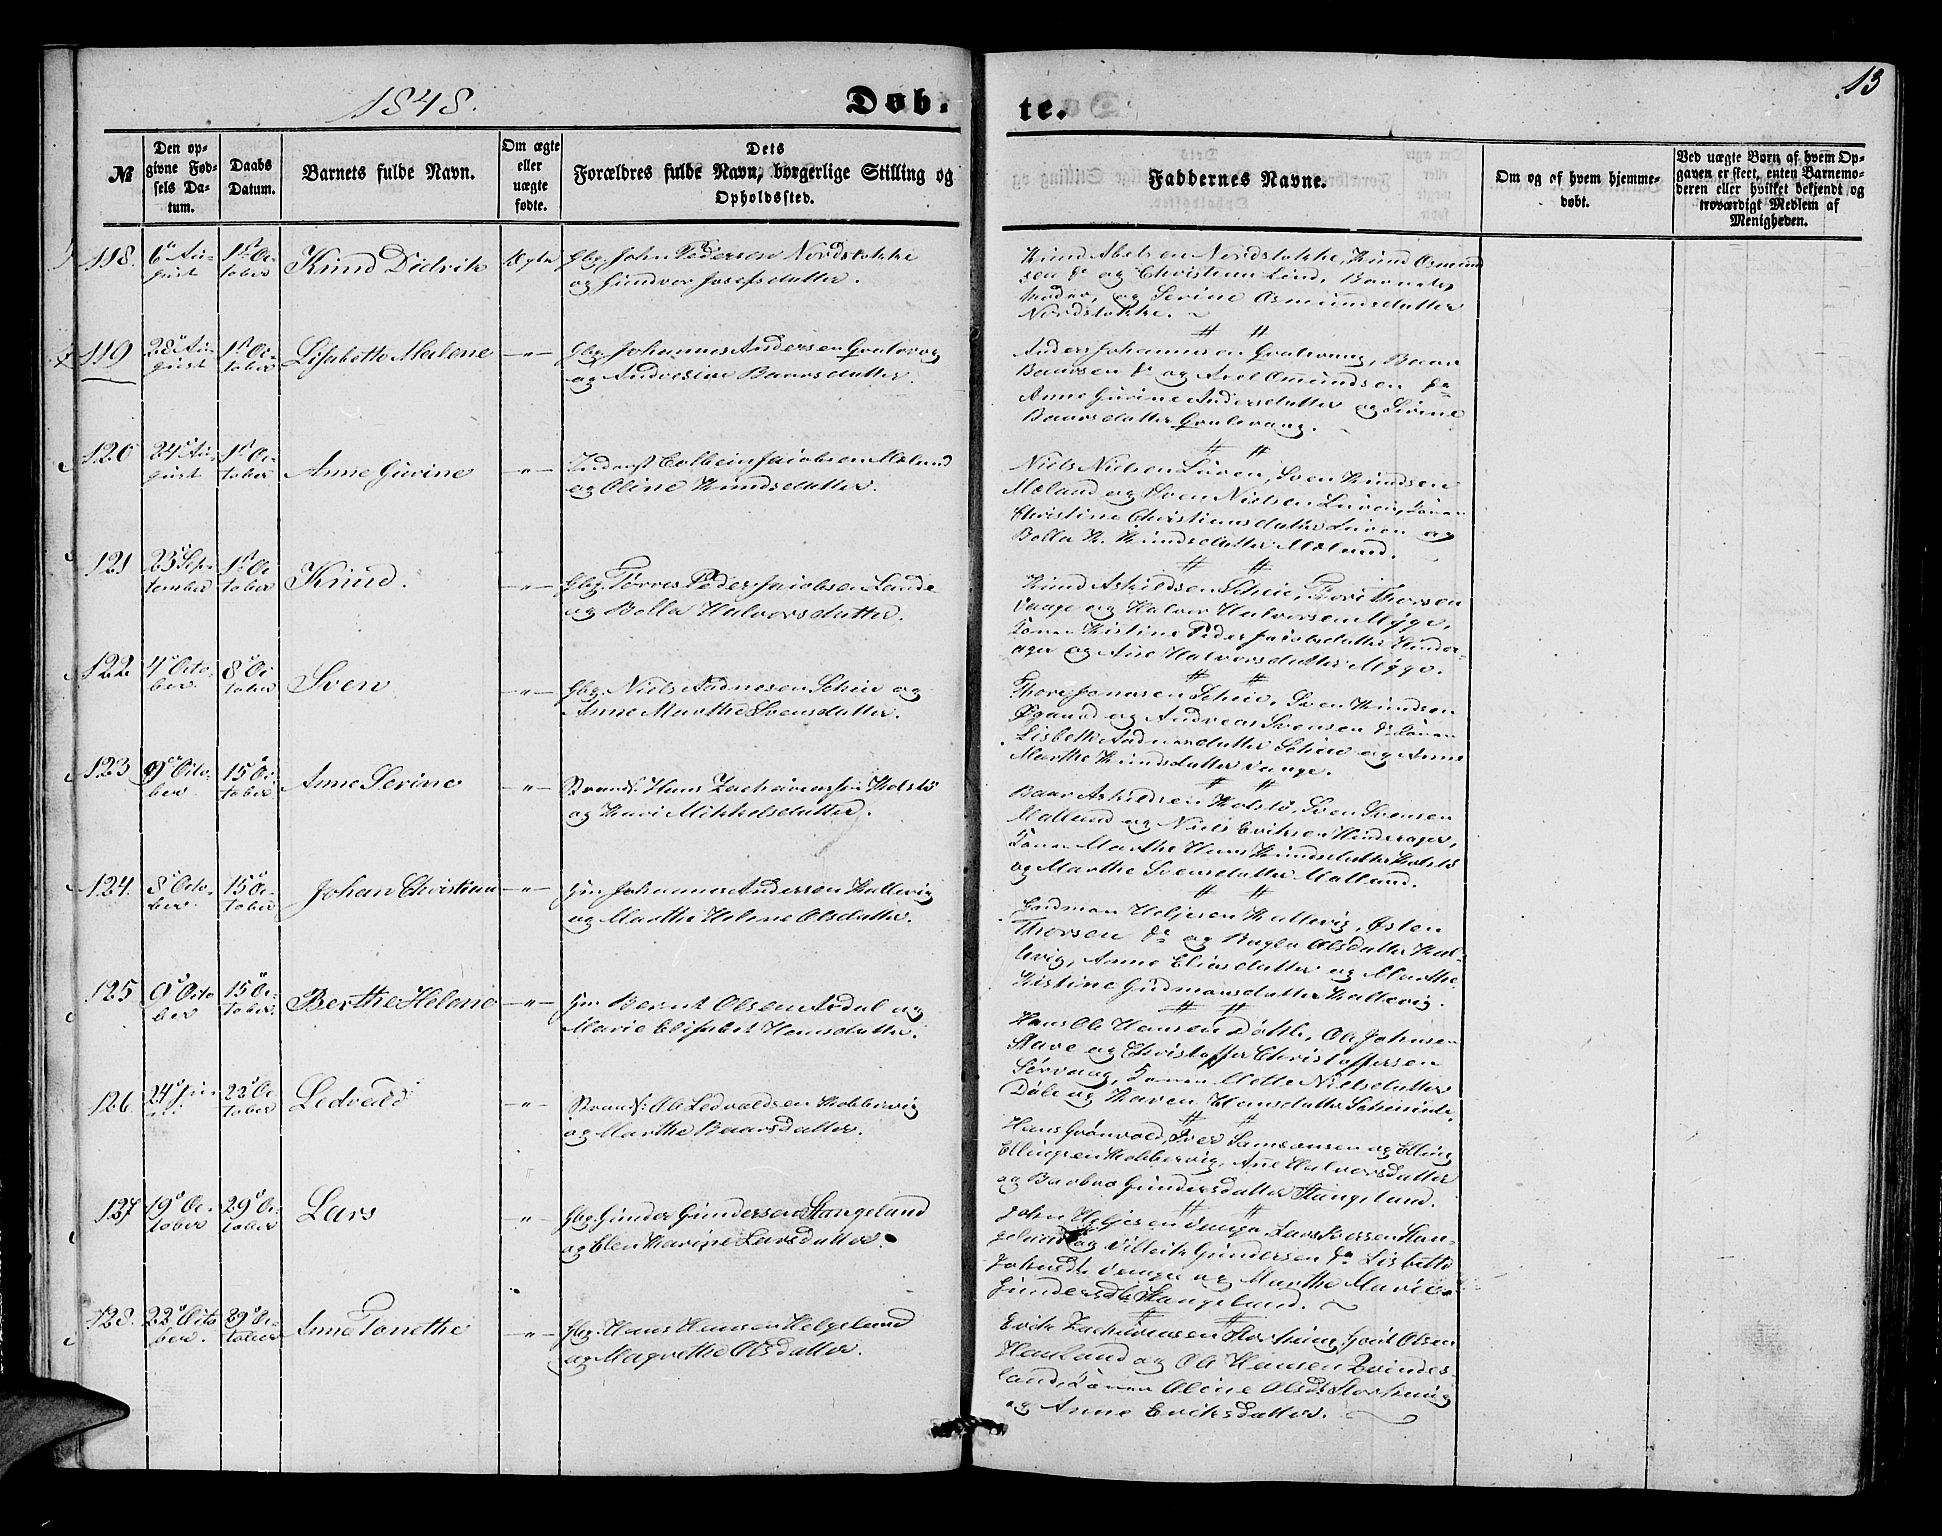 1848.
Døb-
te.
13
№
Den op-
givne Fød-
sels Da-
tum.
Daabs
Datum.
Barnets fulde Navn.
Om ægte
eller
uægte
fødte.
Dets
Forældres fulde Navn, borgerlige Stilling og
Opholdssted.
Faddernes Navne.
Om og af hvem hjemme-
døbt.
Ved uægte Børn af hvem Op-
gaven er skeet, enten Barnemo-
deren eller hvilket bekjendt og
troværdigt Medlem af
Menigheden.
118.
6 Au-
gust
1st Oc-
tober
Knud Didrik
Ægte
Gbr John Pedersen Nordstokke
og Gundvor Josefsdatter.
Knud Abelsen Nordstokke, Knud Osmund
sen do og Christian Lind, Barnets
Moder, og Serine Osmundsdatter
Nordstokke.
119
28 Au-
gust
1st Oc-
tober
Lisbette Malene
–"–
Gbr Johannes Andersen
og Andresine Baarsdatter.
Anders Johannesen Baar
Baarsen do og Axel Omundsen do
Anne Gurine Andersdatter og Serine
Baarsdatter
120
24 Au-
gust
1st Oc-
tober
Anne Gurine
–"–
Inderst Colbein Jacobsen Mæland
og Oline Knudsdatter.
Niels Nielsen Sven Knudsen
Mæland og Sven Nielsen
Christine Christiansdatter og
Bolla K. Knudsdatter Mæland.
121
23 Sep-
tember
1st Oc-
tober
Knud.
–"–
Gbr Tørres Peder Jacobsen Lande
og Bolla Halvorsdatter.
Knud Askildsen Scheie, Tore Thorsen
Vaage og Halvor Halvorsen Mygge,
Kistine Peder Jacobsdatter Hinder-
ager og Ane Halvorsdatter Mygge.
122
4 Octo
ber.
8 Oc-
tober
Sven
–"–
Gbr Niels Andersen Scheie og
Anne Marthe Svensdatter.
Thore Jonassen Scheie, Sven Knudsen
Øgaard og Andreas Svensen do
Lisbeth Andersdatter Scheie og Anne
Marthe Knudsdatter Vaage.
123
9 Octo
ber.
15 Oc-
tober
Anne Serine
–"–
Strands. Hans Zachariassen Kolstø
og Kari Mikkelsdatter.
Baar Askildsen Kolstø, Sven Svensen
Mælland og Niels Eriksen Hinderager,
Marthe Hans Knudsdatter Kolstø
og Marthe Svensdatter Mælland.
124.
8 Octo-
ber.
15 Oc-
tober
Johan Christian
–"–
Johannes Andersen Kallevig
og Marthe Helene Olsdatter.
Gudman Heljesen Kallevig, Østen
Thorsen do og Olsdatter Kal-
levig, Anne Eliasdatter og Marthe
Kistine Gudmansdatter Kallevig.
125
9 Octo
ber
15 Oc-
tober
Berthe Helene
–"–
Bernt Olsen Aadal og
Marie Elisabet Hansdatter.
Hans Ole Hansen Døhle, Ole Johnsen
Stave og Christoffer Christoffersen
Sørvaag, Mette Nielsdatter
Døle og Karen Hansdatter
126
24 Ju-
ni
22 Oc-
tober
Ledvald
–"–
Strands. Ole Ledvaldsen Kobbervig
og Marthe Baarsdatter.
Hans Grønvold, Iver Samsonsen og Elling
Ellingsen Kobbervig, Ane Halvorsdatter
og Barbro Gundersdatter Stangeland.
127
19 Oc-
tober
29 Oc-
tober
Lars
–"–
Gbr Gunder Gundersen Stangeland
og Elen Karine Larsdatter.
John Heljesen Vaage, Lars Iversen Stan-
geland og Gundersen do Lisbette
Johnsdt Vaage og Marthe Marie
Gundersdt Stangeland.
128.
22 Octo
ber.
29 Oc-
tober
Anne Tonethe
–"–
Gbr. Hans Hansen Helgeland
og Magrethe Olsdatter.
Erik Zachariassen Storhaug, Olsen
Hauland og Ole Hansen Qvindes-
land, Oline Olsdt Storhaug
og Anne Eriksdatter.